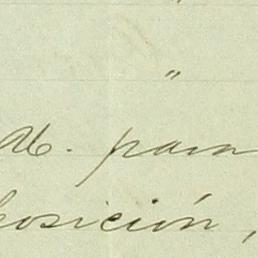 "
M. para
osición,